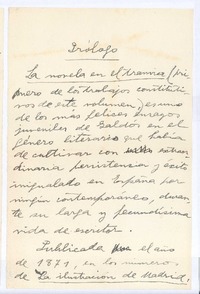 Prólogo
La novela en el tranvía (pri-
mero de los trabajos constituti-
vos de este volumen) es uno
de los más felices ensayos
juveniles de Galdós en el
género literario que había
de cultivar con extraor-
dinaria persistencia y éxito
inigualado en España por
ningún contemporáneo, duran-
te su larga y fecundísima
vida de escritor.
Publicada el año
de 1871, en los números
de "La ilustración de Madrid,